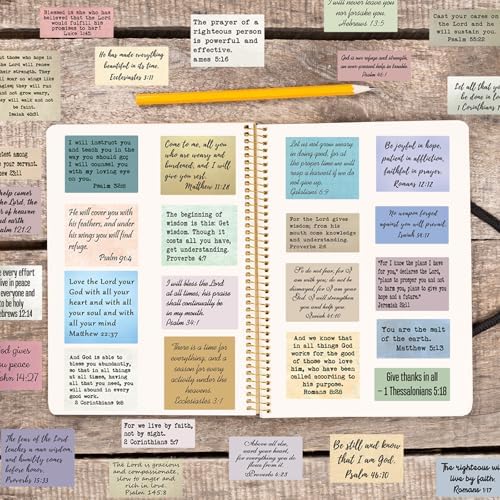 Blessed is she who has
believed that the Lord
would fulfill his
promises to her!
Luke 1:45
The prayer of a
righteous person
is powerful and
effective.
ames 5:16
I will never leave you
nor forsake you.
Hebrews 13:5
Cast your cares on
the Lord and he
will sustain you.
Psalm 55:22
but those who hope in
the Lord will renew
their strength. They
will soar on wings like
eagles; they will run
and not grow weary,
they will walk and not
be faint.
Isaiah 40:31
He has made everything
beautiful in its time.
Ecclesiastes 3:11
God is our refuge and strength,
an ever-present help in trouble.
Psalm 46:1
Let all that you
be done in lo
1 Corinthians 1
I will instruct you
and teach you in
the way you should go;
I will counsel you
with my loving eye
on you.
Psalm 32:8
Come to me, all you
who are weary and
burdened, and I will
give you rest.
Matthew 11:28
He will cover you with
his feathers, and under
his wings you will find
refuge.
Psalm 91:4
The beginning of
wisdom is this: Get
wisdom. Though it
costs all you have,
get understanding.
Proverbs 4:7
Love the Lord your
God with all your
heart and with all
your soul and with
all your mind
Matthew 22:37
I will bless the Lord
at all times; his praise
shall continually be
in my mouth.
Psalm 34:1
And God is able to
bless you abundantly,
so that in all things
at all times, having
all that you need, you
will abound in every
good work.
2 Corinthians 9:8
There is a time for
everything, and a
season for every
activity under the
heavens.
Ecclesiastes 3:1
Let us not grow weary
in doing good, for at
the proper time we will
reap a harvest if we do
not give up.
Galatians 6:9
Be joyful in hope,
patient in affliction,
faithful in prayer.
Romans 12:12
For the Lord gives
wisdom; from his
mouth come knowledge
and understanding.
Proverbs 2:6
No weapon forged
against you will prevail.
Isaiah 54:17
So do not fear, for I
am with you; do not be
dismayed, for I am your
God. I will strengthen
you and help you.
Isaiah 41:10
"For I know the plans I have
for you," declares the Lord,
"plans to prosper you and not
to harm you, plans to give you
hope and a future."
Jeremiah 29:11
And we know that
in all things God
works for the good
of those who love
him, who have been
called according to
his purpose.
Romans 8:28
You are the salt
of the earth.
Matthew 5:13
Give thanks in all
– 1 Thessalonians 5:18
eatest among
e your servant.
help comes
the Lord, the
of heaven
d earth
alm 121:2
e every effort
live in peace
everyone and
to be holy
ebrews 12:14
God gives
peace
ohn 14:27
The fear of the Lord
teaches a man wisdom,
and humility comes
before honor.
Proverbs 15:33
For we live by faith,
not by sight.
2 Corinthians 5:7
The Lord is gracious
and compassionate,
slow to anger and
rich in love.
Psalm 145:8
Above all else,
guard your heart,
for everything you
do flows from it.
Proverbs 4:23
Be still and know
that I am God.
Psalm 46:10
The righteous w
live by faith
Romans 1:17